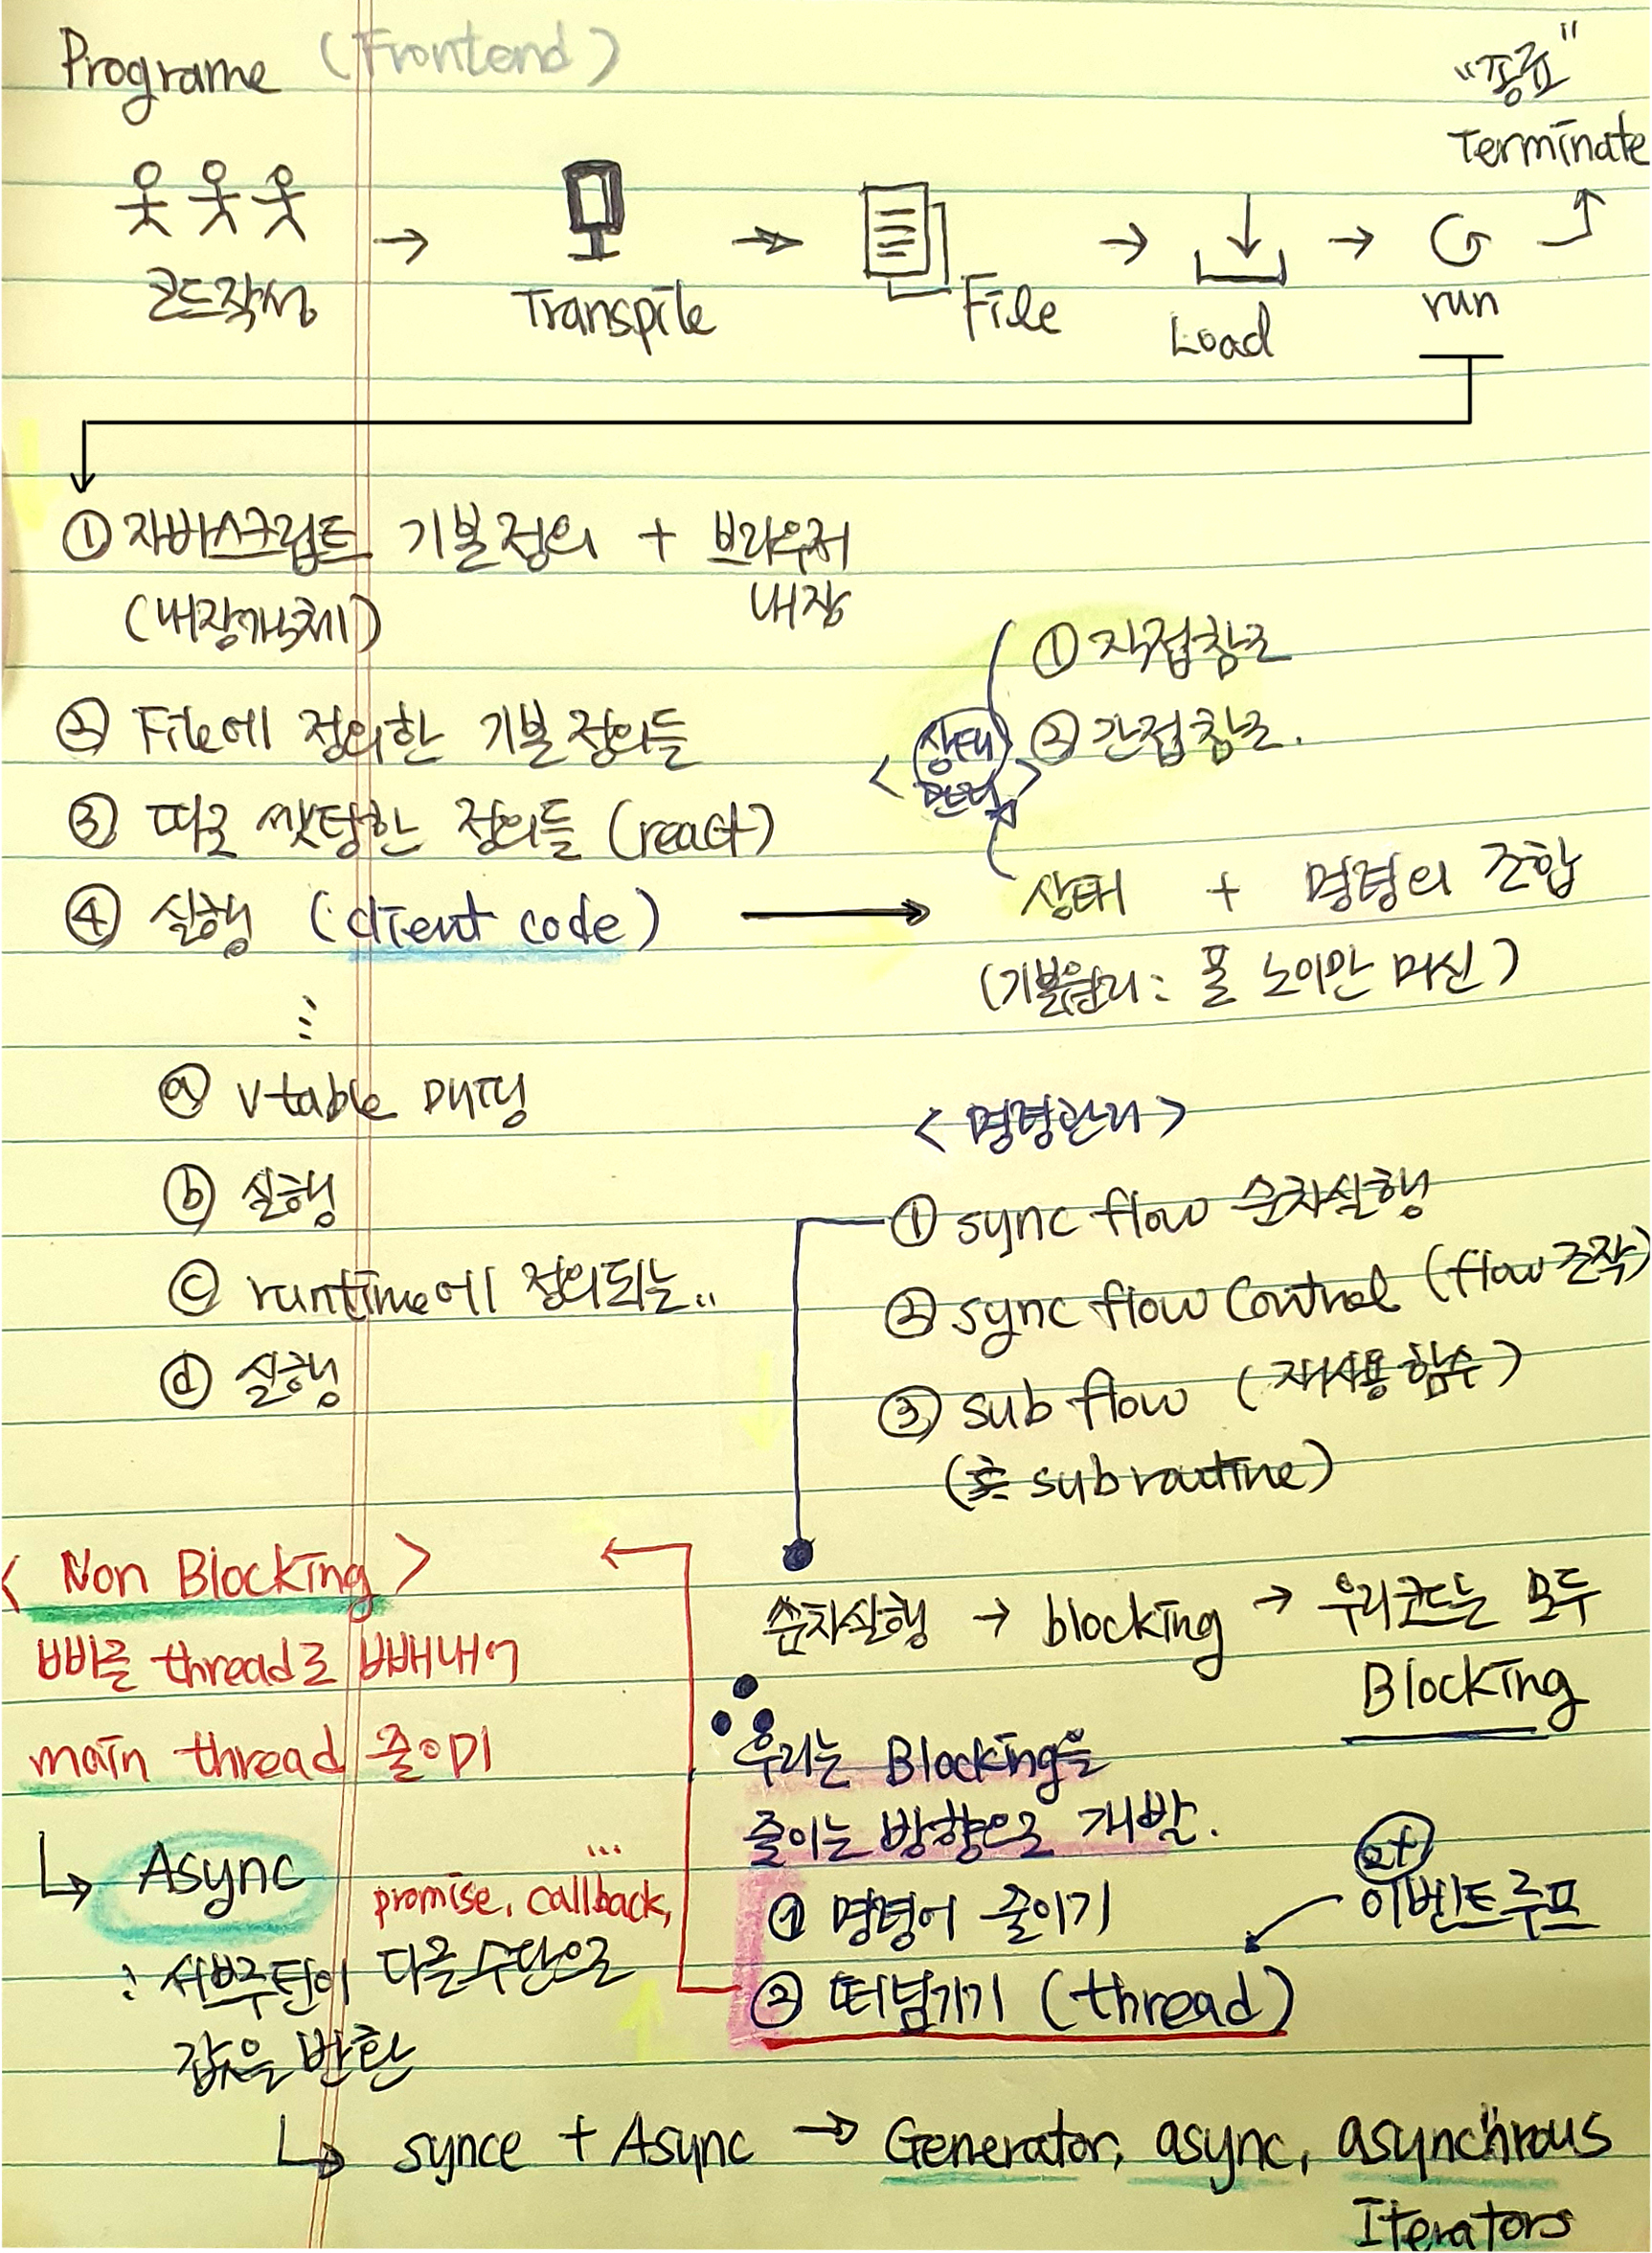 Programe (Frontend)
"종료"
Terminate
코드작성
Transpile
File
Load
run
① 자바스크립트 기본정의 + 브라우저
(내장객체) 내장
② File에 정의한 기본정의들
③ 따로 셋팅한 정의들 (react)
④ 실행 (client code)
① 직접참조
② 간접참조.
<상태
관리>
상태 + 명령의 조합
(기본원리: 폰 노이만 머신)
ⓐ vtable 매핑
ⓑ 실행
ⓒ runtime에 정의되는..
ⓓ 실행
<명령관리>
① sync flow 순차실행
② sync flow Control (flow 조작)
③ sub flow (재사용 함수)
subroutine)
순차실행 → blocking → 우리코드는 모두
Blocking
우리는 Blocking을
줄이는 방향으로 개발.
① 명령어 줄이기
② 떠넘기기 (thread)
2+
이벤트루프
<Non Blocking>
빠른 thread로 빼내어
main thread 줄이미
Async
...
promise, callback,
: 서브루틴이 다른수단으로
값을 반환
synce + Async → Generator, async, asynchrous
Iterators